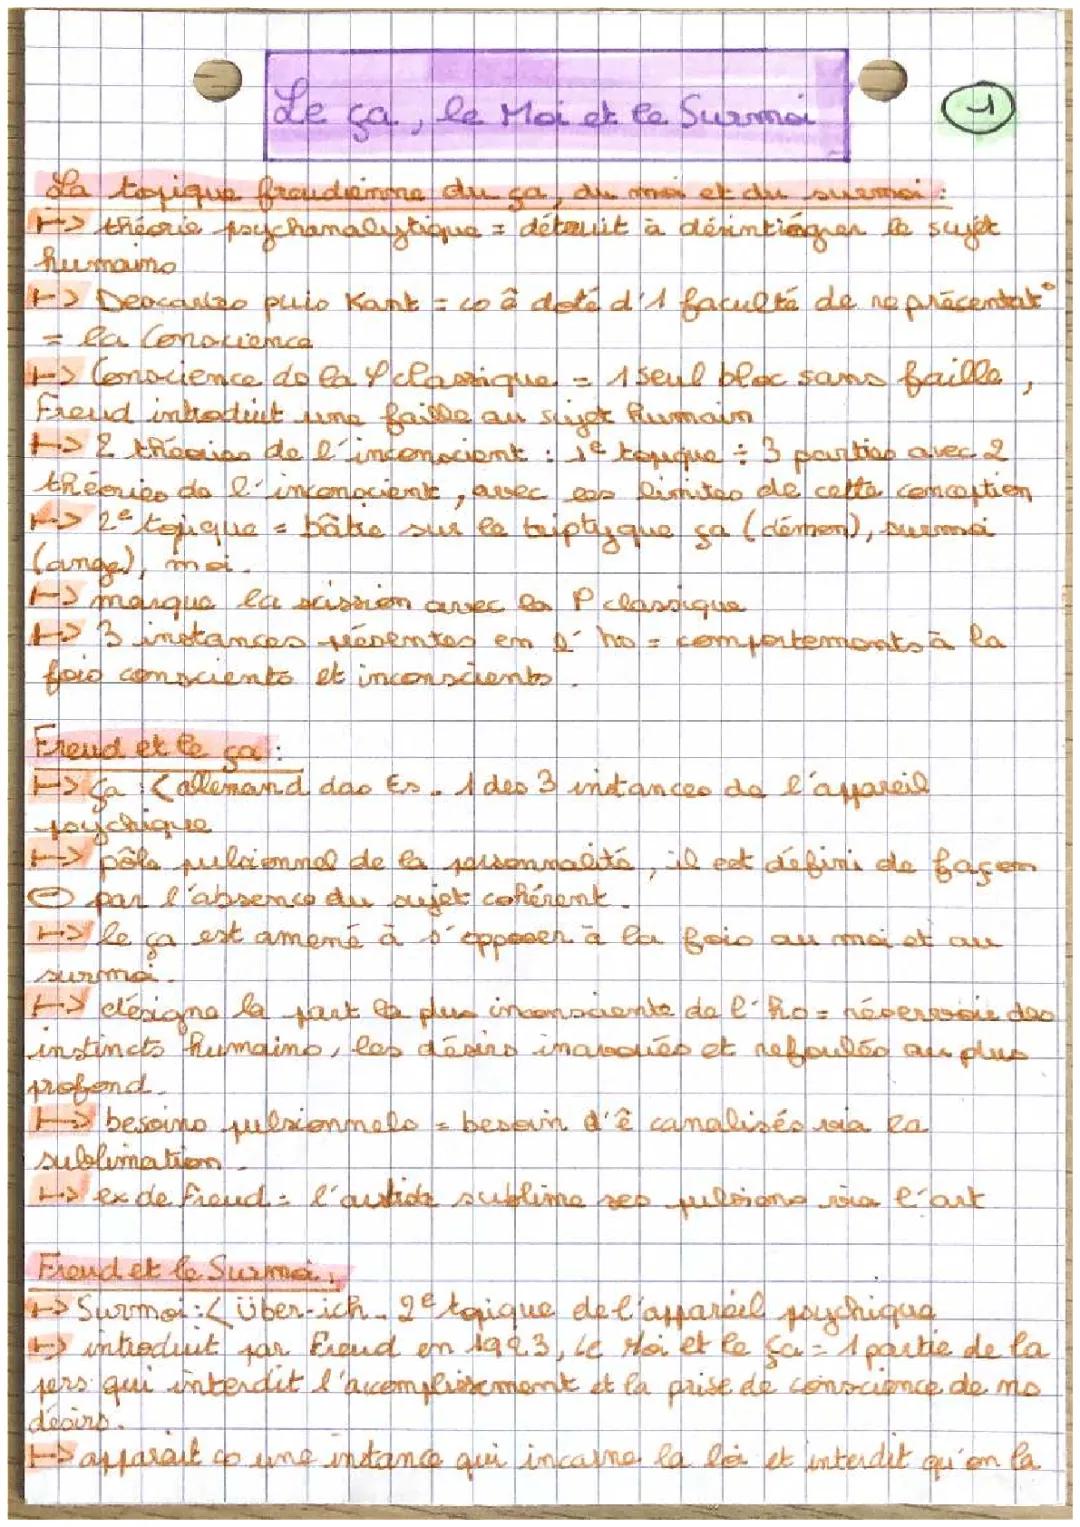 Le ça, le Moi et le Surmoi
1
La topique freudienne du ça, du moi et du surmoi :
↦ théorie psychanalytique = détruit à désintiégrer le sujet
humains
↦ Descartes puis Kant = co ê doté d'1 faculté de représentat°
= la Conscience
↦ Conscience de la φ classique = 1 seul bloc sans faille,
Freud introduit une faille au sujet humain
↦ 2 théories de l'inconscient : 1e topique ÷ 3 parties avec 2
théories de l'inconscient, avec les limites de cette conception
↦ 2e topique = bâtie sur le triptyque ça (démon), surmoi
(ange), moi.
↦ marque la scission avec la P classique
↦ 3 instances présentes en l'ho = comportements à la
fois conscients et inconscients.
Freud et le ça :
↦ Ça : < allemand das Es. 1 des 3 instances de l'appareil
psychique
↦ pôle pulsionnel de la personnalité, il est défini de façon
⊖ par l'absence du sujet cohérent.
↦ le ça est amené à s'opposer à la fois au moi et au
surmoi.
↦ désigne la part la plus inconsciente de l'ho = réservoir des
instincts humains, les désirs inavoués et refoulés au plus
profond.
↦ besoins pulsionnels = besoin d'ê canalisés via la
sublimation.
↦ ex de Freud = l'artiste sublime ses pulsions via l'art
Freud et le Surmoi,
↦ Surmoi : < Über-ich. 2e topique de l'appareil psychique
↦ introduit par Freud en 1923, le Moi et le Ça = 1 partie de la
pers qui interdit l'accomplissement et la prise de conscience de ns
désirs.
↦ apparait co une instance qui incarne la loi et interdit qu'on la